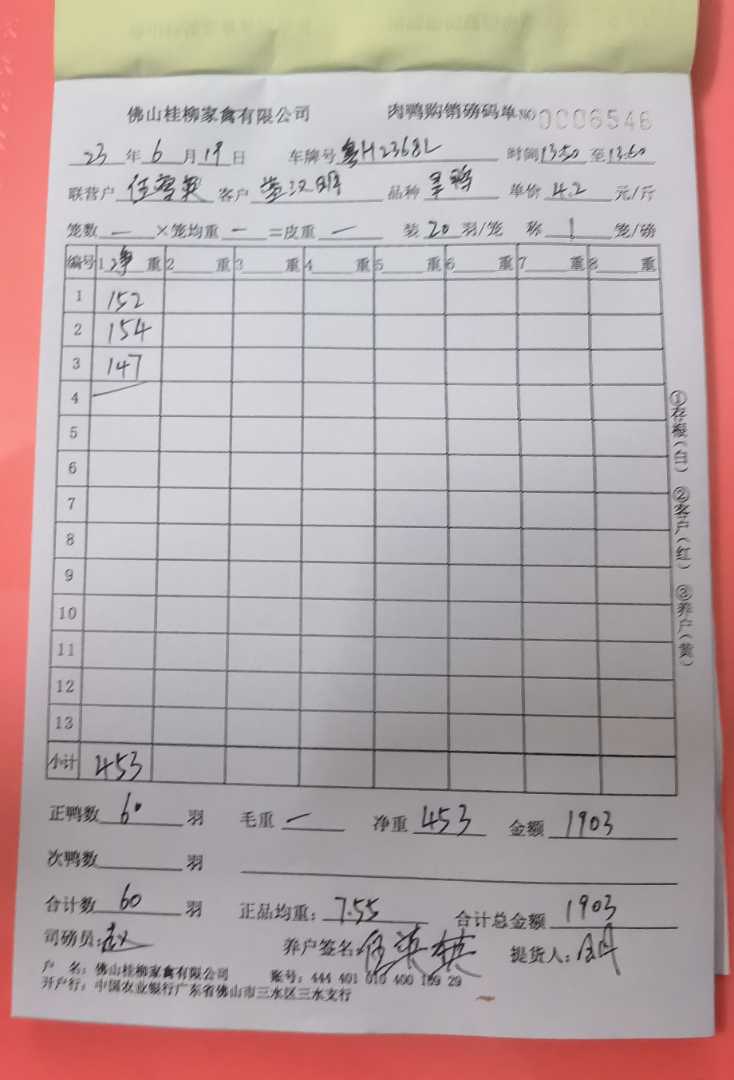 佛山桂柳家禽有限公司 肉鸭购销磅码单 NO 0006546
23 年 6 月 19 日 车牌号 粤H2368L 时间 13:50 至 13:60
联营户 客户 汉明 品种 单价 4.2 元/斤
笼数 — ×笼均重 — =皮重 — 装 20 羽/笼 称 1 笼/磅
编号 1 净 重 2 重 3 重 4 重 5 重 6 重 7 重 8 重
1 152
2 154
3 147
4
5
6
7
8
9
10
11
12
13
小计 453
正鸭数 60 羽 毛重 — 净重 453 金额 1903
次鸭数 羽
合计数 60 羽 正品均重: 7.55 合计总金额 1903
司磅员: 养户签名: 提货人: 明
户 名: 佛山桂柳家禽有限公司 账号: 444 401 010 400 169 29
开户行: 中国农业银行广东省佛山市三水区三水支行
①存根(白) ②客户(红) ③养户(黄)